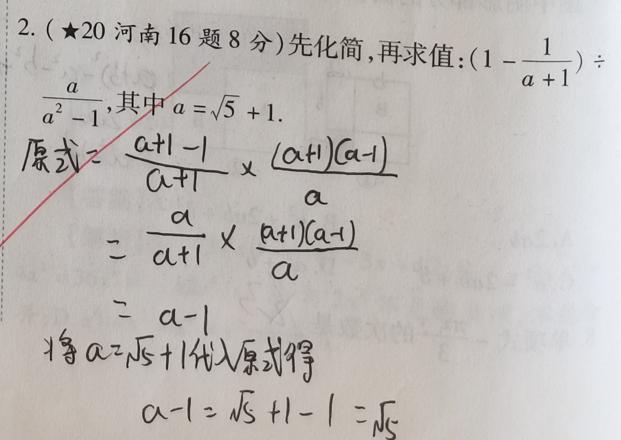 2. (★20 河南 16 题 8 分)先化简,再求值:(1 - 1/(a + 1)) ÷
a/(a² - 1),其中 a = √5 + 1.
原式= (a+1-1)/(a+1) × (a+1)(a-1)/a
= a/(a+1) × (a+1)(a-1)/a
= a-1
将 a=√5+1代入原式得
a-1=√5+1-1=√5